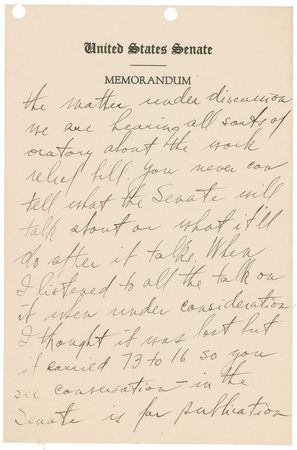 United States Senate
MEMORANDUM
the matter under discussion
we are hearing all sorts of
oratory about the work
relief bill. You never can
tell what the Senate will
talk about or what it'll
do after it talks. When
I listened to all the talk on
it when under consideration
I thought it was lost but
it carried 73 to 16 so you
see conversation in the
Senate is for publication